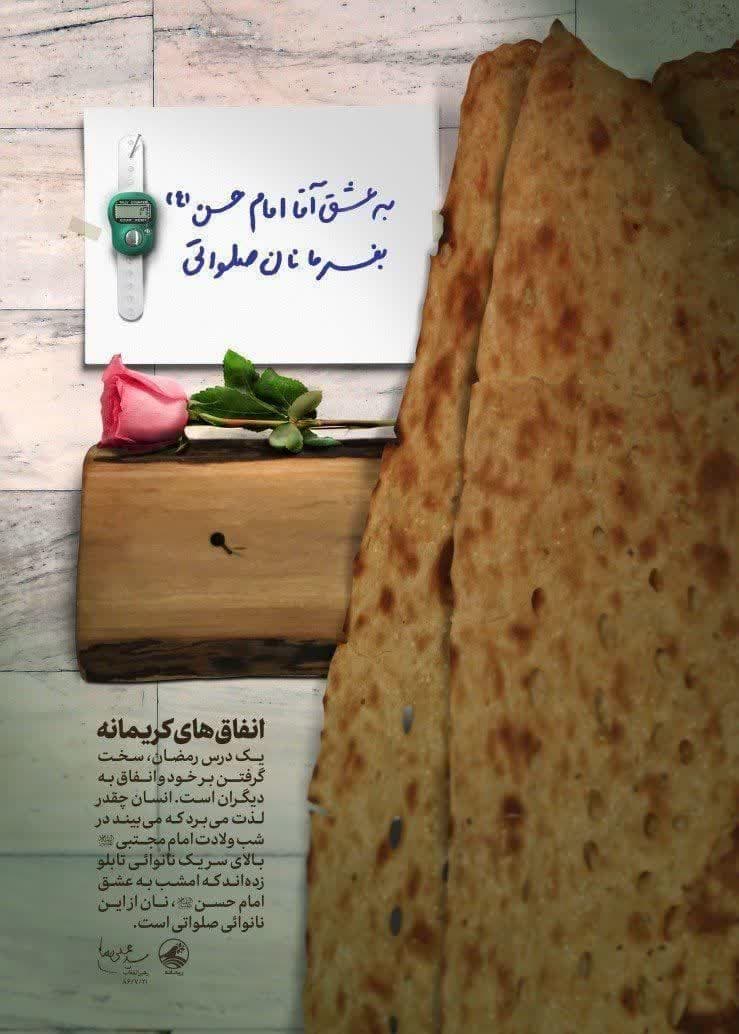 به عشق آقا امام حسن (ع)
بفرما نان صلواتی
انفاق‌های کریمانه
یک درس رمضان، سخت
گرفتن بر خود و انفاق به
دیگران است. انسان چقدر
لذت می‌برد که می‌بیند در
شب ولادت امام مجتبی
بالای سر یک نانوائی تابلو
زده‌اند که امشب به عشق
امام حسن ، نان از این
نانوائی صلواتی است.
رهبر انقلاب
۸۶/۷/۲۱